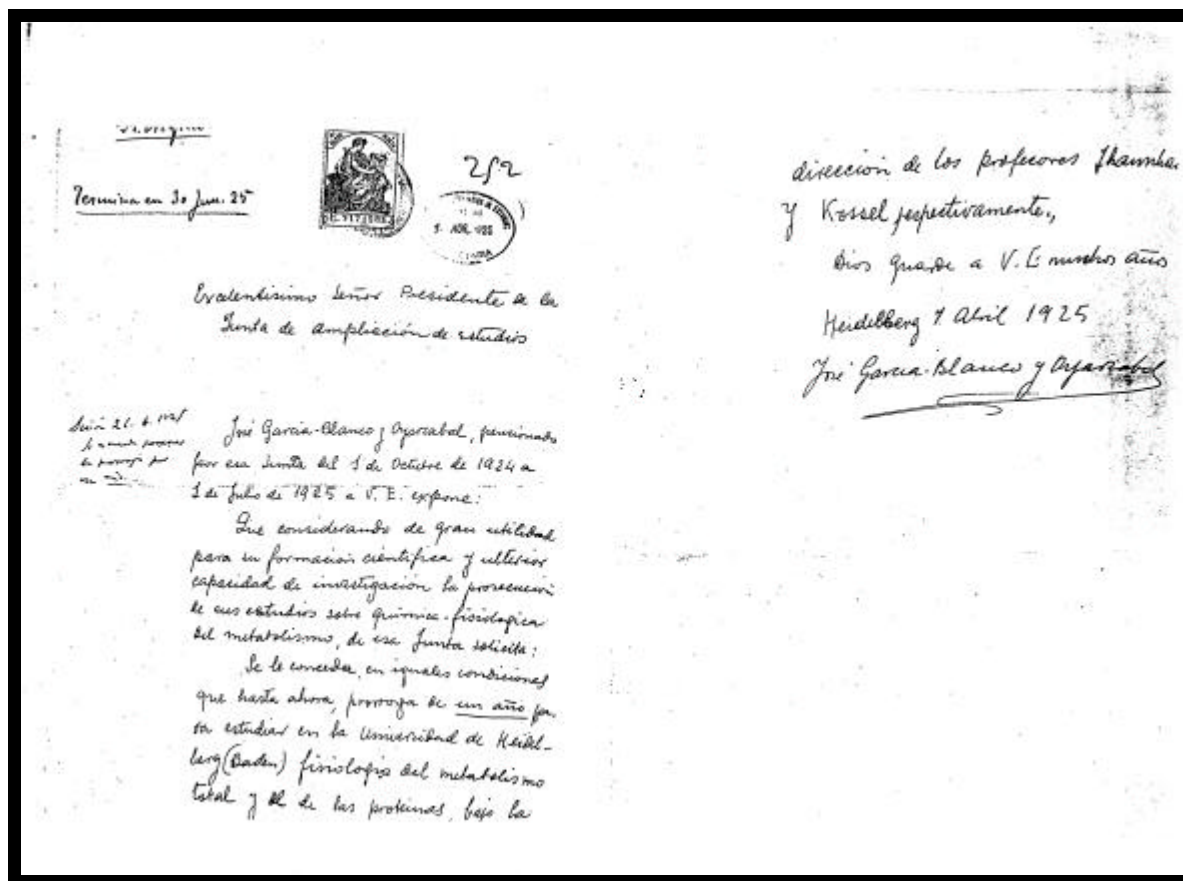 Termina en 30 Jun. 25
252
ABR. 1925
Excelentísimo Señor Presidente de la
Junta de ampliación de estudios
José García-Blanco y Oyarzabal, pensionado
por esa Junta del 1 de Octubre de 1924 a
1 de Julio de 1925 a V. E. expone:
Que considerando de gran utilidad
para su formación científica y ulterior
capacidad de investigación la prosecución
de sus estudios sobre química-fisiologica
del metabolismo, de esa Junta solicita:
Se le conceda, en iguales condiciones
que hasta ahora, prorroga de un año pa-
ra estudiar en la Universidad de Heidel-
berg (Baden) fisiologia del metabolismo
total y de las proteinas, bajo la
dirección de los profesores Thannha
y Kossel respectivamente,
Dios guarde a V. E muchos años
Heidelberg 1 Abril 1925
José García-Blanco y Oyarzabal